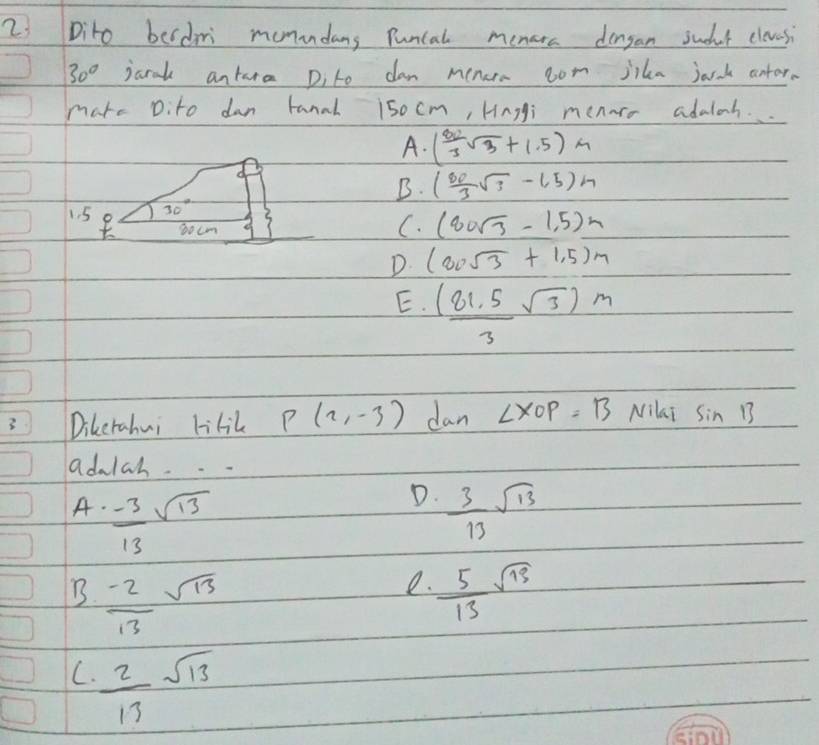 2. Dito berdiri memandang Puncak menara dengan sudut elevasi
30° jarak antara Dito dan menara 80m jika jarak antara
mata Dito dan tanah 150 cm, tinggi menara adalah...
A. (80/3 √3 + 1.5) m
B. (80/3 √3 - 1,5) m
1.5 30°
80cm
C. (80√3 - 1,5) m
D. (80√3 + 1,5) m
E. (81.5/3 √3) m
3. Diketahui titik P (2,-3) dan ∠XOP = B Nilai sin B
adalah . . .
A. -3/13 √13
D. 3/13 √13
B. -2/13 √13
e. 5/13 √13
C. 2/13 √13
SiDU